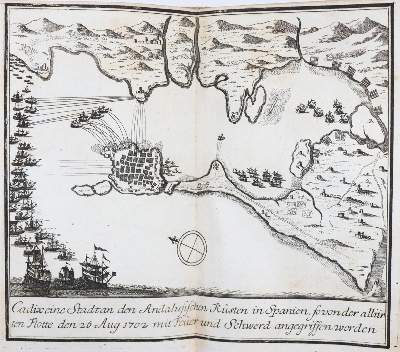 Cadix eine Stadt an den Andalusischen Küsten in Spanien, so von der alliir
ten Flotte den 26 Aug 1702 mit Feuer und Schwerd angegriffen worden